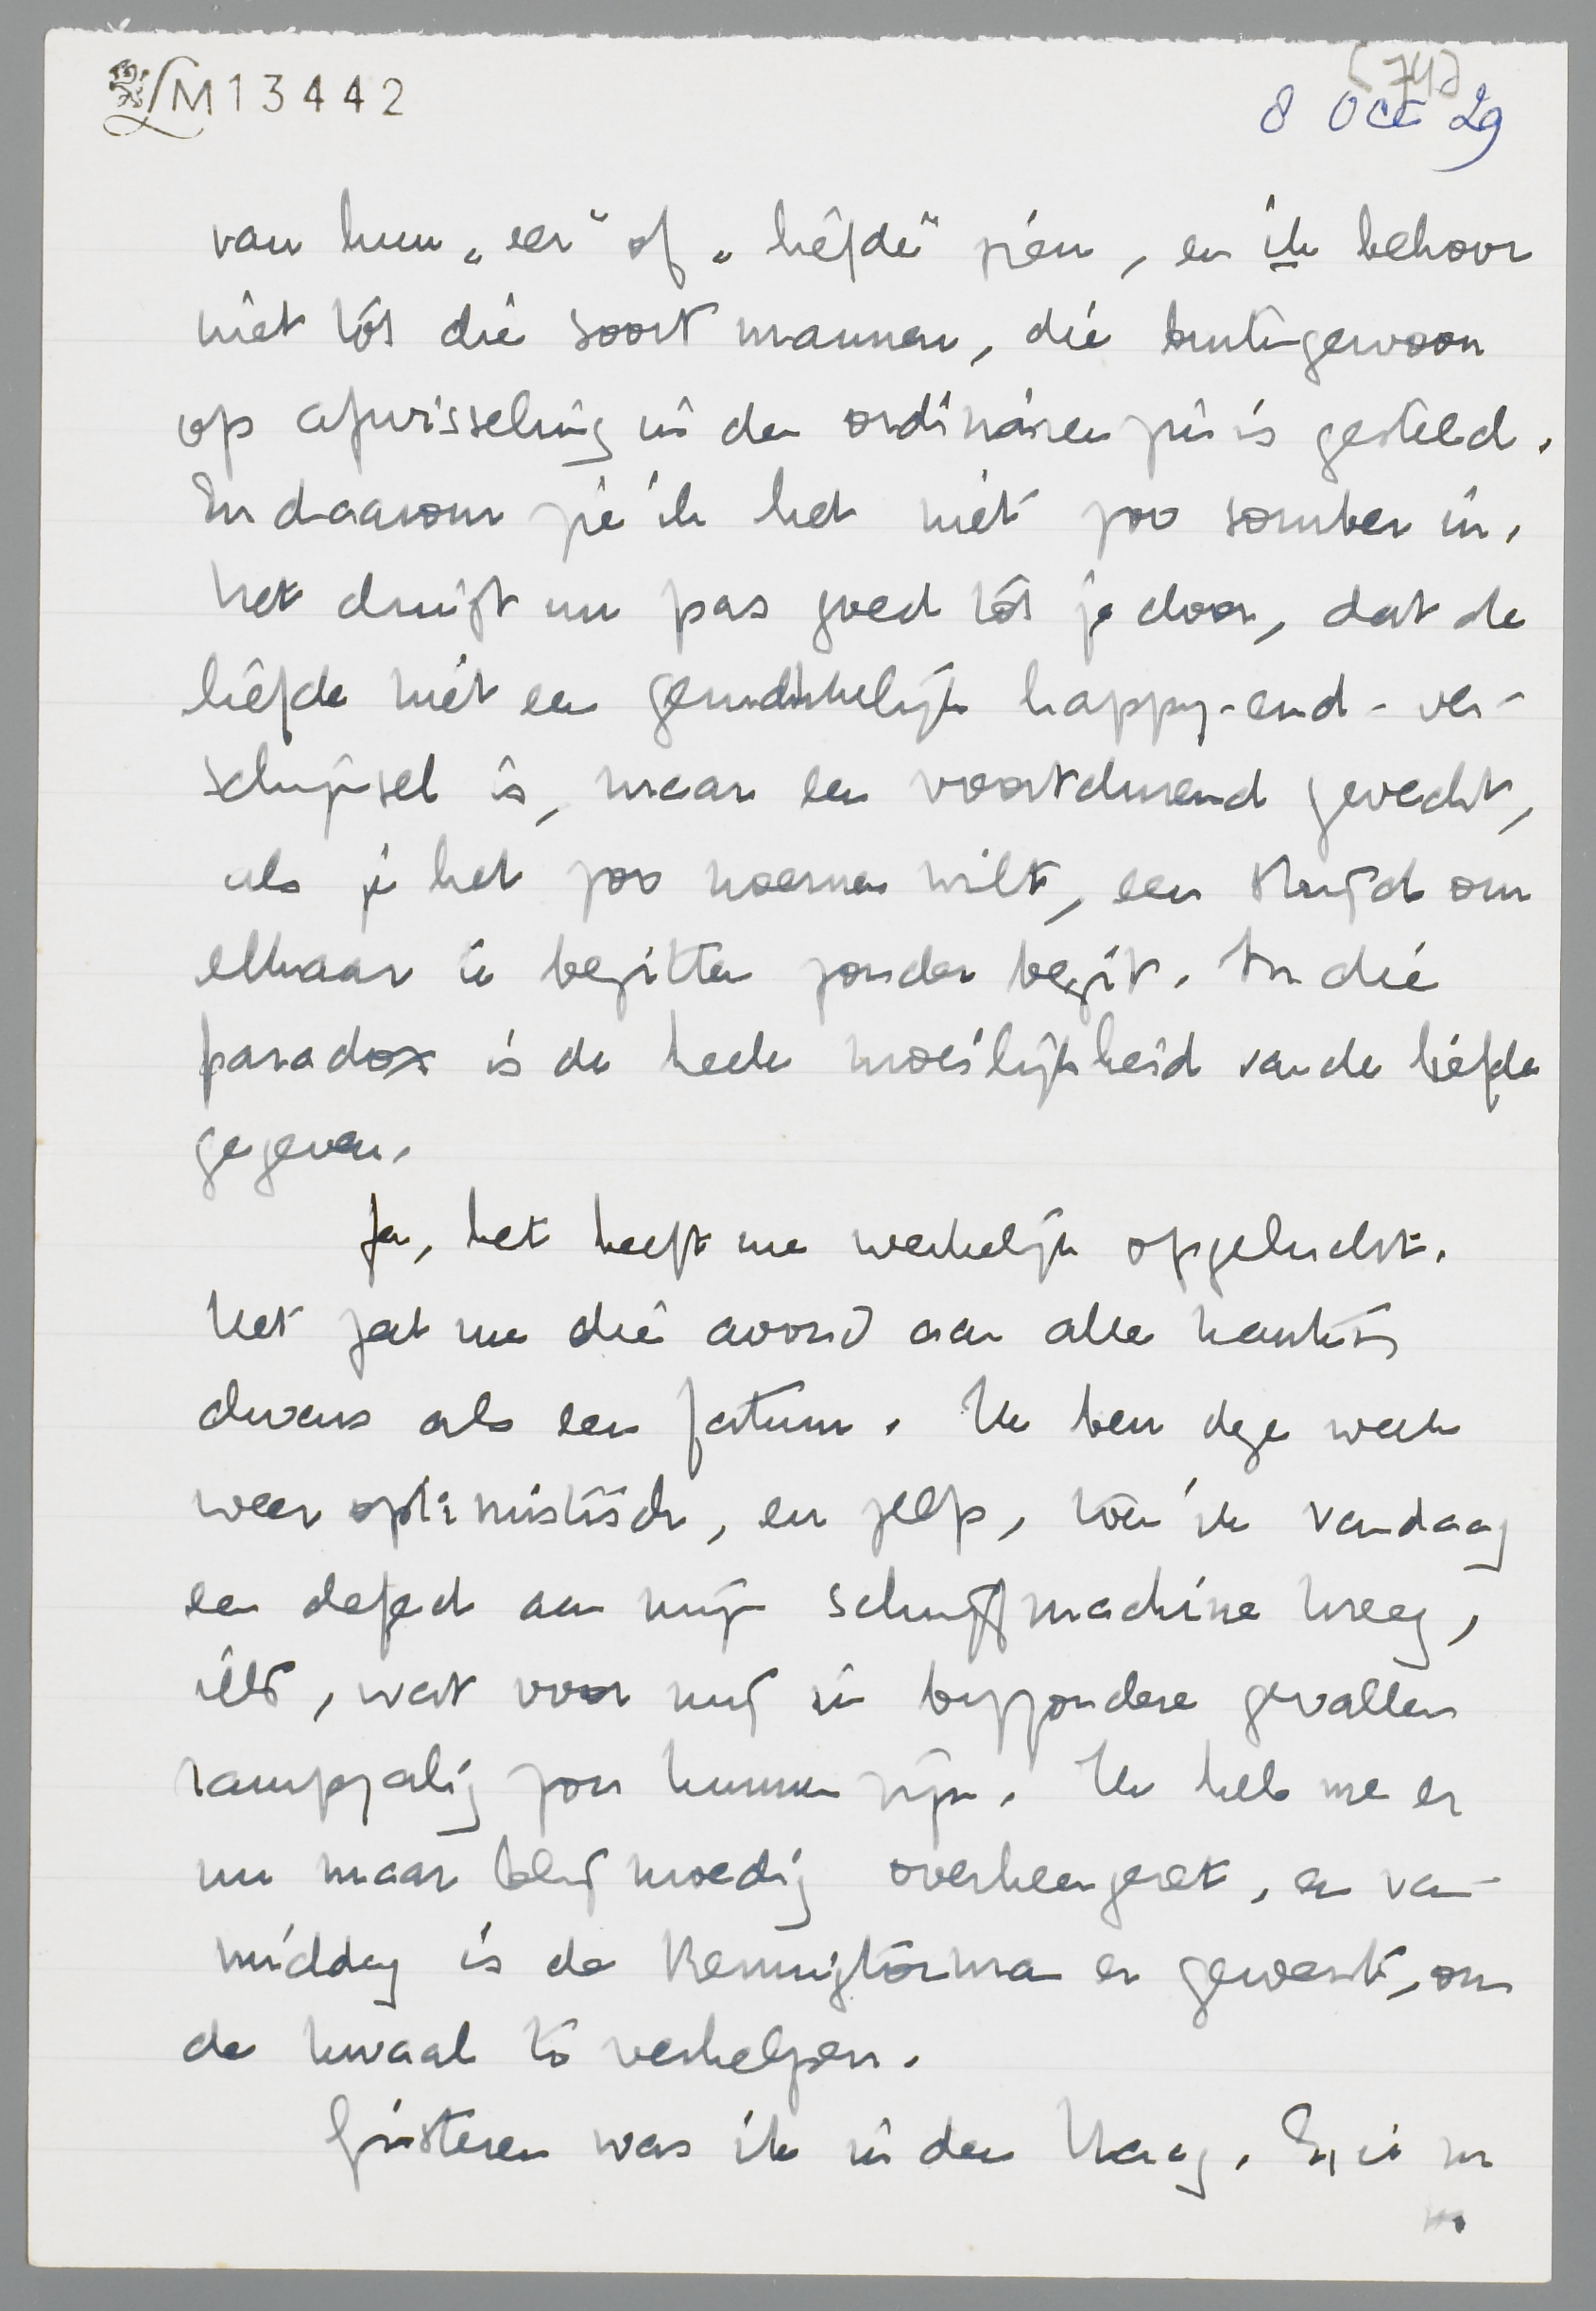 LM13442
[742]
8 Oct 29
van hun „eer" of „liefde" zien, en ik behoor
niet tot die soort mannen, die buitengewoon
op afwisseling in den ordinairen zin is gesteld.
En daarom zie ik het niet zoo somber in.
Het dringt nu pas goed tot je door, dat de
liefde niet een gemakkelijk happy-end-ver-
schijnsel is, maar een voortdurend gevecht,
als je het zoo noemen wilt, een strijd om
elkaar te bezitten zonder bezit. In die
paradox is de heele moeilijkheid van de liefde
gegeven.
Ja, het heeft me werkelijk opgelucht.
Het zat me die avond aan alle kanten
dwars als een fatum. Ik ben deze week
weer optimistisch, en zelfs, toen ik vandaag
een defect aan mijn schrijfmachine kreeg,
iets, wat voor mij in bijzondere gevallen
rampzalig zou kunnen zijn. Ik heb me er
nu maar blijmoedig overheengezet, en van-
middag is de Remingtonman er geweest, om
de kwaal te verhelpen.
Gisteren was ik in den Haag. Er is nu